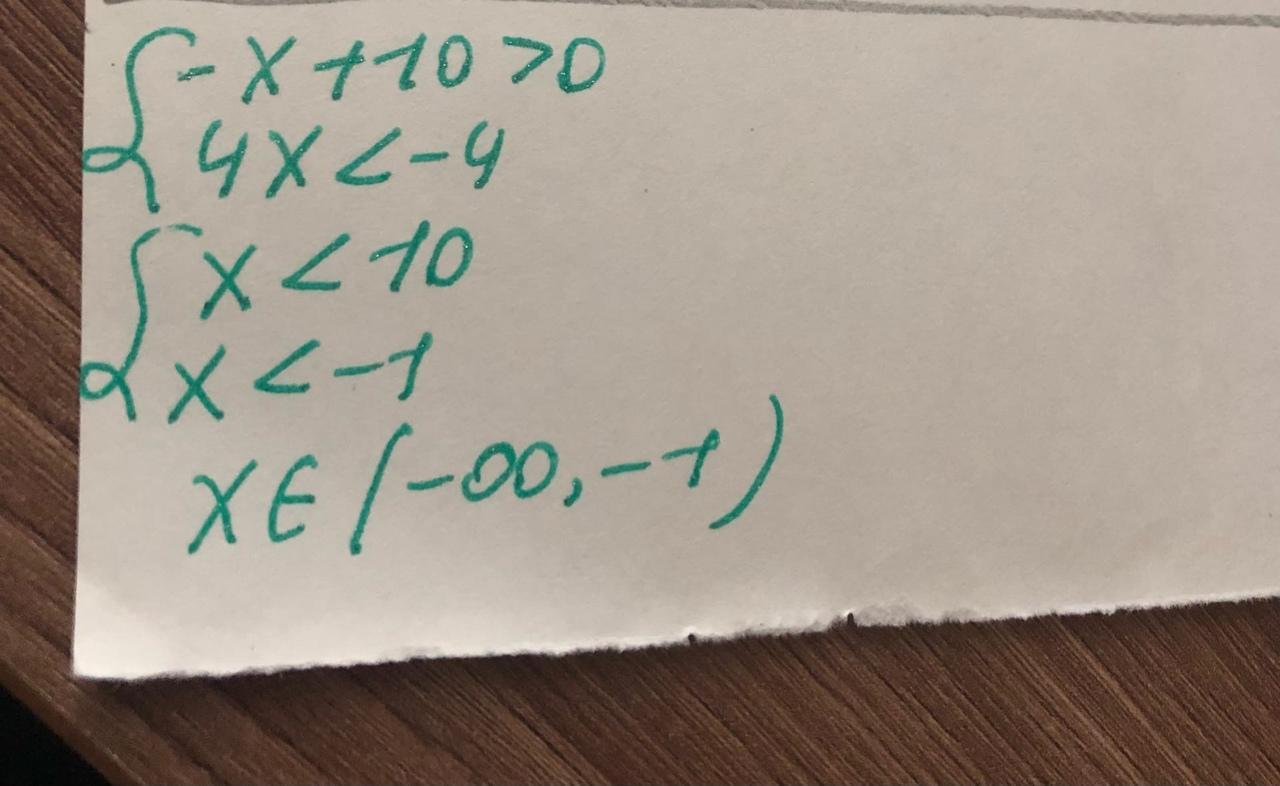 {-x+10>0
4x<-4
{x<10
x<-1
x∈(-∞,-1)